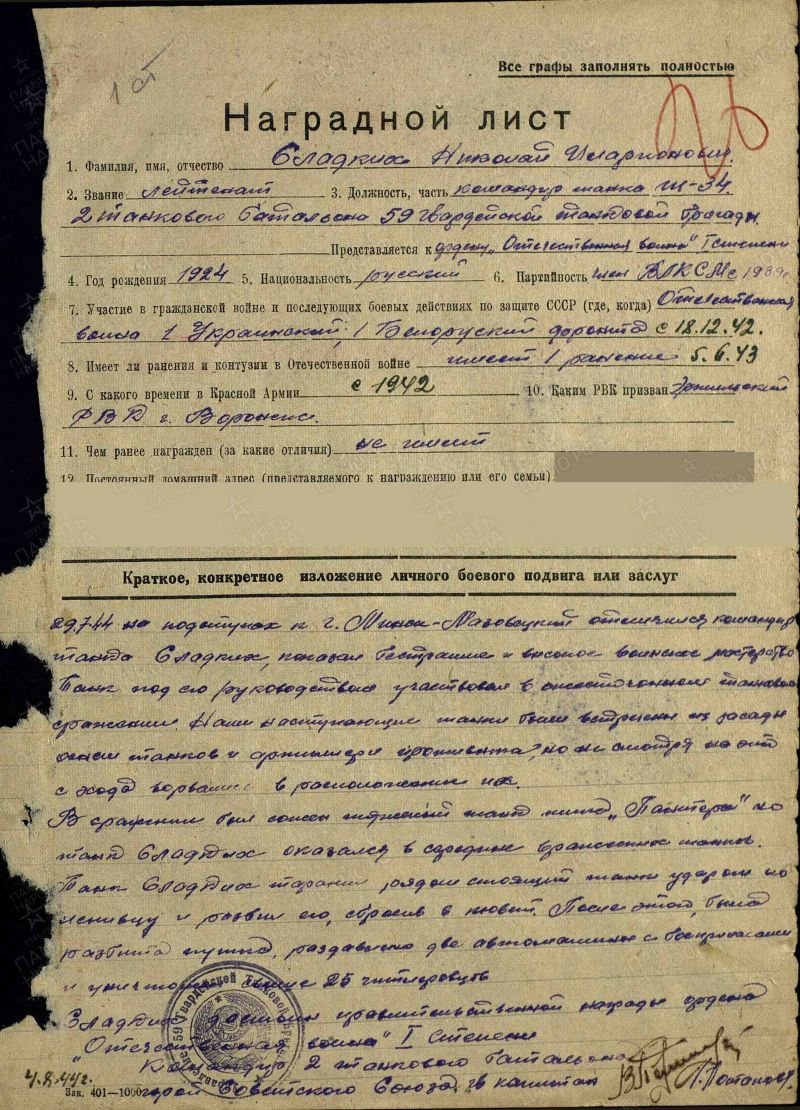 1 сп
Все графы заполнять полностью
Наградной лист
1. Фамилия, имя, отчество Сладких Николай Иларионович.
2. Звание лейтенант 3. Должность, часть командир танка Т-34
2 танкового батальона 59 гвардейской танковой бригады.
Представляется к ордену „Отечественная война" I степени
4. Год рождения 1924 5. Национальность русский 6. Партийность член ВЛКСМ с 1939г.
7. Участие в гражданской войне и последующих боевых действиях по защите СССР (где, когда) Отечественная
война 1 Украинский, 1 Белоруский фронта с 18.12.42.
8. Имеет ли ранения и контузии в Отечественной войне имеет 1 ранение 5.6.43
9. С какого времени в Красной Армии с 1942 10. Каким РВК призван
РВК г. Воронеж.
11. Чем ранее награжден (за какие отличия) не имеет
12. Постоянный домашний адрес (представляемого к награждению или его семьи)
Краткое, конкретное изложение личного боевого подвига или заслуг
29.7.44 на подступах к г. Минск-Мазовецкий отличился командир
танка Сладких, показал бестрашие и высокое воинское мастерство
Танк под его руководством участвовал в ожесточенном танковом
сражении. Наши наступающие танки были встречены из засады
огнем танков и артиллерии противника, но не смотря на это
с хода ворвались в расположение их.
В сражении был сожжен тяжелый танк типа „Пантера" но
танк Сладких оказался в середине вражеских танков.
Танк Сладких таранил рядом стоящий танк ударом по
ленивцу и разбил его, сбросив в кювет. После этого, была
разбита пушка, раздавлено две автомашины с боеприпасами
и уничтожено свыше 25 гитлеровцев
Сладких достоин правительственной награды ордена
"Отечественная война" I степени
Командир 2 танкового батальона
герой Советского Союза гв капитан
4.8.44г.
Зак. 401—1000